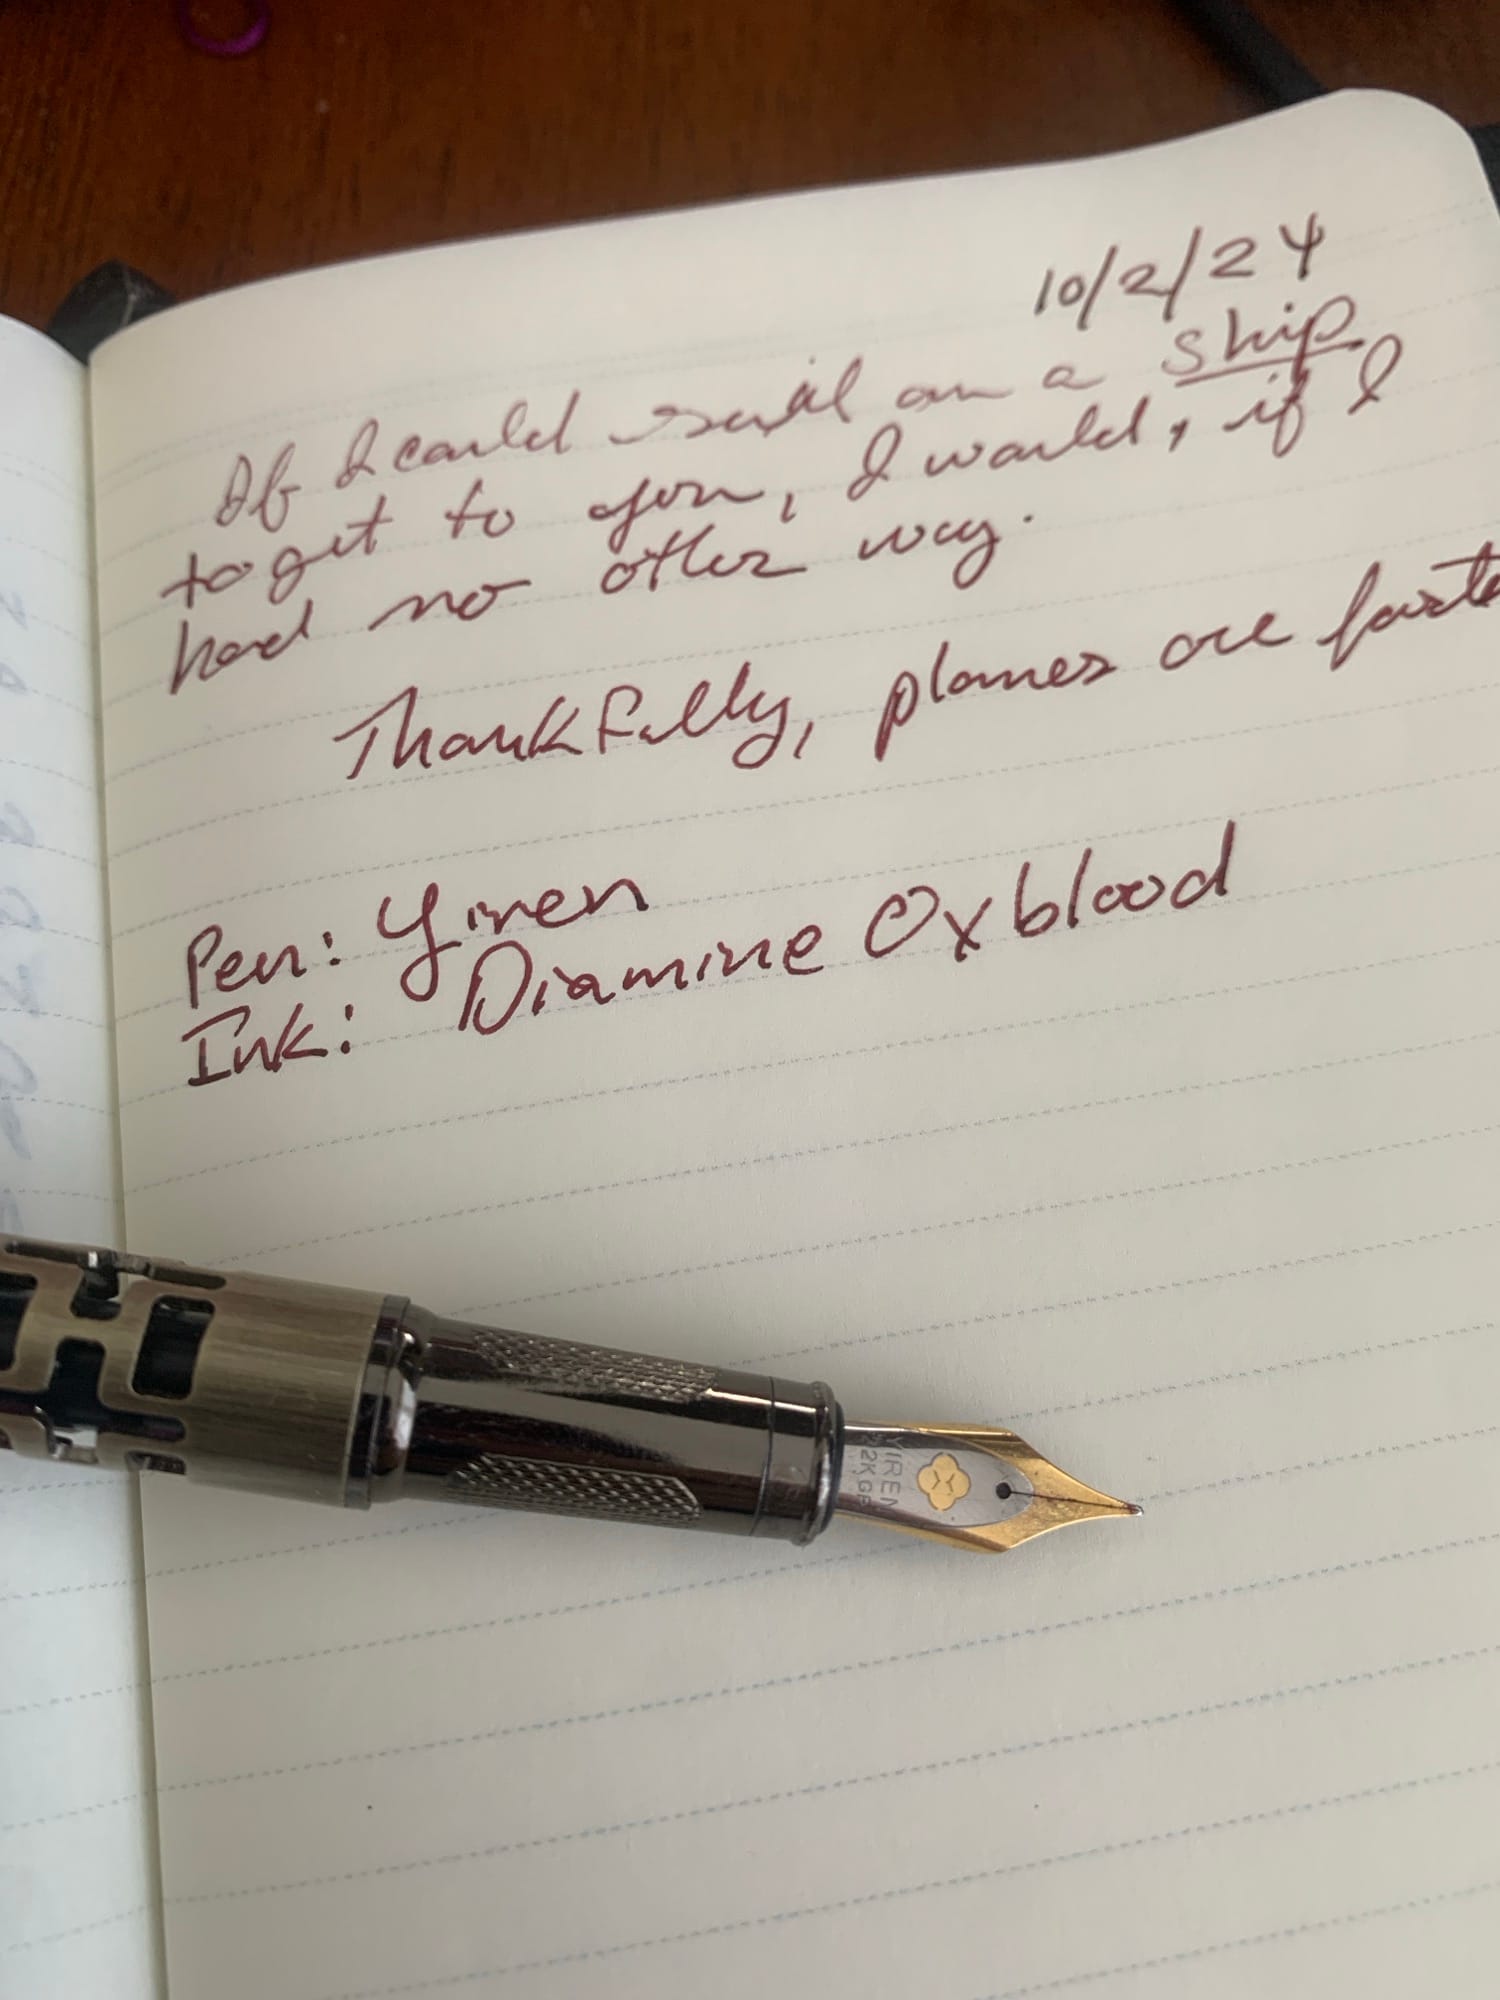 10/2/24
If I could sail on a ship
to get to you, I would, if I
had no other way.
Thankfully, planes are faste
Pen: Yiren
Ink: Diamine Oxblood
YIREN